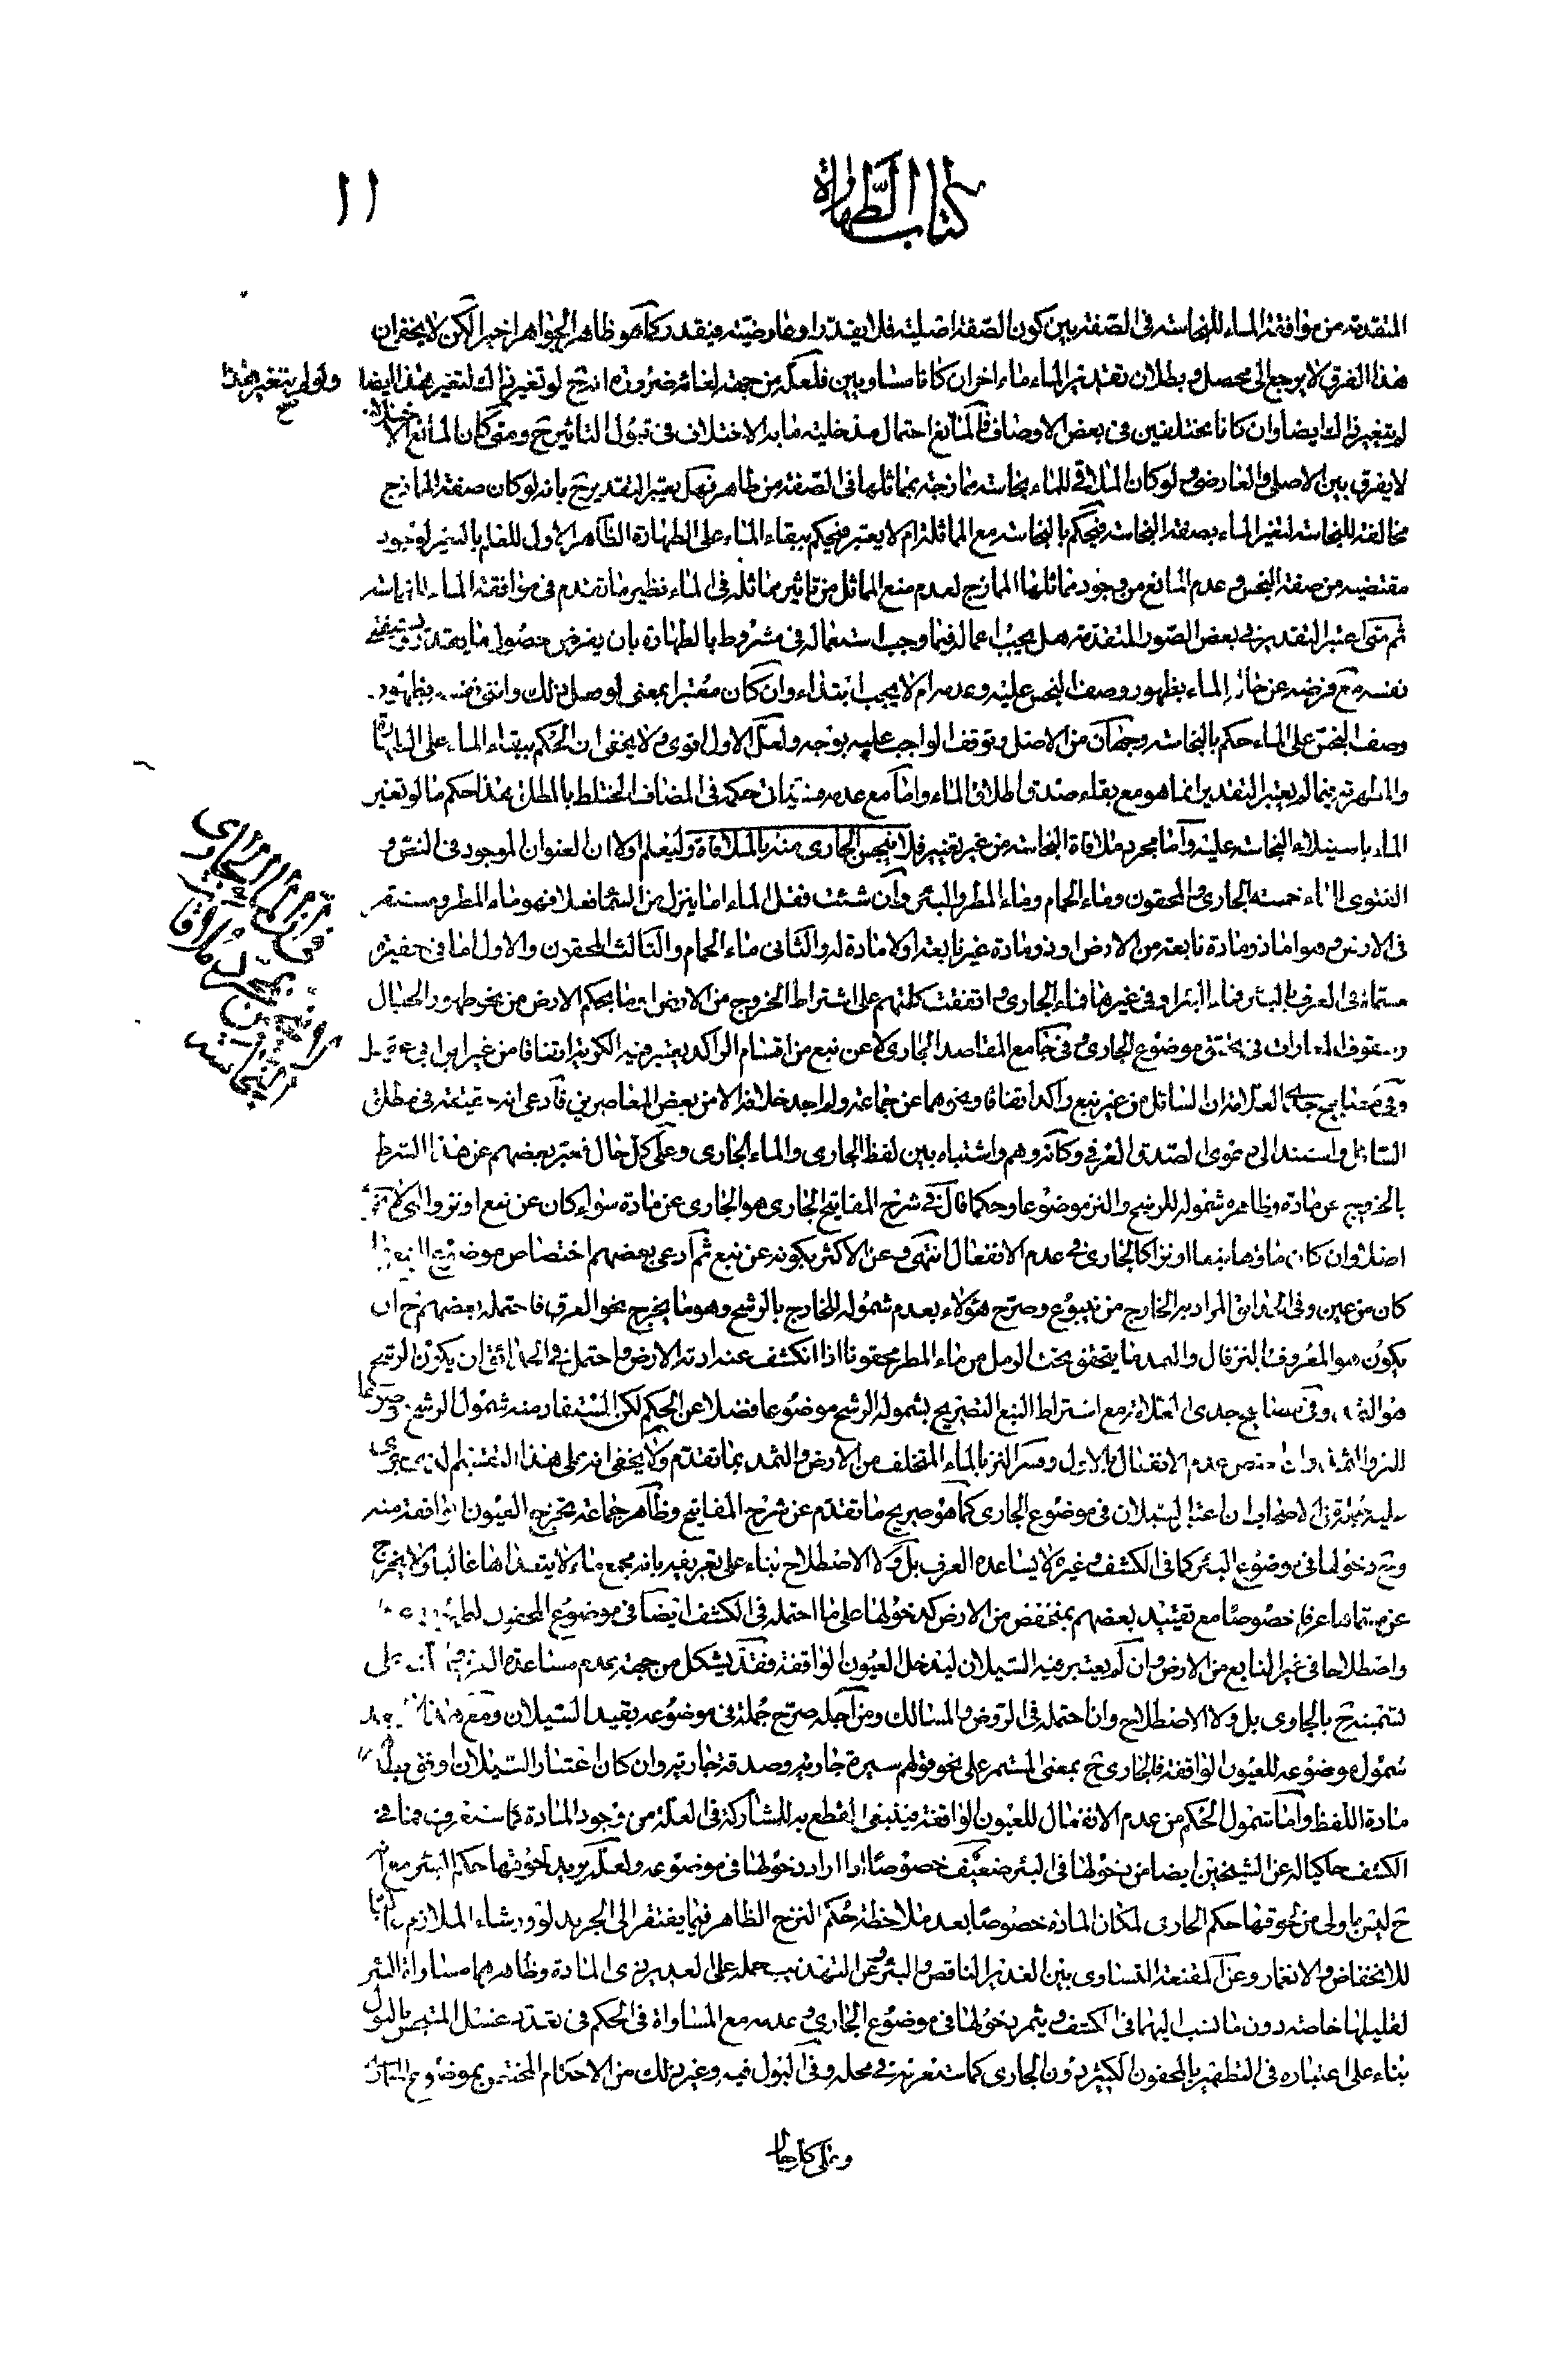 كتاب الطهارة
١١
المتقدمة من موافقة الماء للنجاسة فى الصفة بين كون الصفة اصلية فلا يقدر او عارضية فيقدر كما هو ظاهر الجواهر اخيرا لكن لا يخفى ان
هذا الفرق لا يرجع الى محصل و بطلان تقدير الماء ماء اخر ان كانا متساويين فلعله من جهة لغائه ضرورة انه ح لو تغير ذاك لتغير هذا ايضا
ولو لم يتغير هذا
لم يتغير ذاك ايضا وان كانا مختلفين فى بعض الاوصاف فالمانع احتمال مدخلية ما به الاختلاف فى قبول التاثير ح ومتى كان المانع
لا يفرق بين الاصلى والعارضى ولو كان الملاقى للماء نجاسة ممازجة بمماثلها فى الصفة من طاهر فهل يعتبر التقدير ح بانه لو كان صفة الممازج
مخالفة للنجاسة لتغير الماء بصفة النجاسة فيحكم بالنجاسة مع المماثلة ام لا يعتبر فيحكم ببقاء الماء على الطهارة الظاهر الاول للعلم بالتغير لوجود
مقتضيه من صفة النجس وعدم المانع من وجود مماثلها الممازج لعدم منع المماثل من تاثير مماثله فى الماء نظير ما تقدم فى موافقة الماء
ثم متى اعتبر التقدير فى بعض الصور المتقدمة هل يجب اعماله فيما وجب استعماله فى مشروط بالطهارة بان يفرض حصول ما يعتقد
نفسه مع فرضه عن الماء بظهور وصف النجس عليه وعدمه ام لا يجب ابتداء وان كان معتبرا بمعنى لو حصل ذلك
وصف النجس على الماء حكم بالنجاسة وجهان من الاصل وتوقف الواجب عليه بوجه ولعل الاول اقوى ولا يخفى ان الحكم ببقاء الماء على الطهارة
والمطهرية فيما لم يعتبر التقدير انما هو مع بقاء صدق اطلاق الماء واما مع عدمه حكمه فى المضاف المختلط بالمطلق هذا حكم ما لو تغير
الماء باستيلاء النجاسة عليه واما مجرد ملاقاة النجاسة من غير تغيير فلا ينجس الجارى منه بالملاقاة وليعلم اولا ان العنوان الموجود فى النص و
الفتوى الماء خمسة الجارى والمحقون وماء الحمام وماء المطر والبئر وان شئت فقل الماء اما ينزل من السماء فعلا فهو ماء المطر ومستقر
فى الارض وهو اما ذو مادة نابعة من الارض او ذو مادة غير نابعة او لا مادة له والثانى ماء الحمام والثالث المحقون والاول اما فى حفيرة
مسماة فى العرف بالبئر فماء البئر او فى غيرها فماء الجارى واتفقت كلمتهم على اشتراط الخروج من الارض او ما بحكم الارض من نحو ظهور الجبال
وسقوف المغارات فى تحقق موضوع الجارى وفى جامع المقاصد الجارى لا عن نبع من اقسام الراكد يعتبر فيه الكرية اتفاقا من غير
وفى مصابيح العلامة ان السائل من غير نبع راكد اتفاقا ونحوهما عن جماعة ولم اجد خلافه الا من بعض المعاصرين فادعى انه حقيقة فى مطلق
السائل واستند الى دعوى الصدق العرفى وكانه وهم واشتباه بين لفظ الجارى والماء الجارى وعلى كل حال فعبر بعضهم عن هذا الشرط
بالخروج عن مادة وظاهره شموله للرشح والنز موضوعا وحكما قال فى شرح المفاتيح الجارى هو الجارى عن مادة سواء كان عن نبع او نز
اصلا وان كان ماؤها نبعا او نزا كالجارى فى عدم الانفعال انتهى وعن الاكثر بكونه عن نبع ثم ادعى بعضهم اختصاص موضوع
كان من عين وفى الحدائق المراد به الخارج من ينبوع وصرح هؤلاء بعدم شموله للخارج بالرشح وهو ما يخرج بنحو العرق فاحتمله بعضهم ح ان
يكون هو المعروف بالنز قال والثمد ما يتحقق تحت الرمل من ماء المطر محقونا اذا انكشف عنه ادته الارض واحتمل فى الحدائق ان يكون الرشح
هو الثمد وفى مصابيح جدى العلامة مع اشتراط النبع التصريح بشموله الرشح موضوعا فضلا عن الحكم لكن المستفاد منه شمول الرشح
للنز والثمد عدم الانفعال بالاول وفسر النز بالماء المتخلف من الارض والثمد بما تقدم ولا يخفى انه على هذا
ان اعتبار السيلان فى موضوع الجارى كما هو صريح ما تقدم عن شرح المفاتيح وظاهر جماعة تخرج العيون الواقفة منه
وح دخولها فى موضوع البئر كما فى الكشف وغيره لا يساعده العرف بل ولا الاصطلاح بناء على تعريفه بانه مجمع ماء لا يتعداها غالبا ولا يخرج
عن مسماها عرفا خصوصا مع تقييد بعضهم بمنخفض من الارض كدخولها على ما احتمله فى الكشف ايضا فى موضوع المحقون
واصطلاحا فى غير النابع من الارض وان لم يعتبر فيه السيلان ليدخل العيون الواقفة فقد يشكل من جهة عدم مساعدة العرف على
تسميته ح بالجارى بل ولا الاصطلاح وان احتمله فى الروض والمسالك ومن اجله صرح جملة فى موضوعه بقيد السيلان ومع
شمول موضوعه للعيون الواقفة فالجارى ح بمعنى المستمر على نحو قولهم سيرة جارية وصدقة جارية وان كان اعتبار السيلان اوفق
مادة اللفظ واما شمول الحكم من عدم الانفعال للعيون الواقفة فينبغى القطع به للمشاركة فى العلة من وجود المادة كما ستعرف فما فى
الكشف حاكيا له عن الشيخين ايضا من دخولها فى البئر ضعيف خصوصا اذا اراد دخولها فى موضوعه ولعله يريد لحوقها حكم البئر
ح ليس باولى من لحوقها حكم الجارى لمكان المادة خصوصا بعد ملاحظة حكم النزح الظاهر فيما يفتقر الى الجريد لو ورشاء الملازم
للانخفاض والانغمار وعن المقنعة التساوى بين الغدير الناقص والبئر وعن التهذيب حمله على الغدير ذى المادة وظاهرهما مساواة البئر
لقليلها خاصة دون ما نسب اليهما فى الكشف ويثمر دخولها فى موضوع الجارى وعدمه مع المساواة فى الحكم فى تعدد غسل المتنجس بالبول
بناء على اعتباره فى التطهير بالمحقون الكثير دون الجارى كما ستعرفه فى محله وفى البول فيه وغير ذلك من الاحكام المختص بموضوع
وعلى كل حال